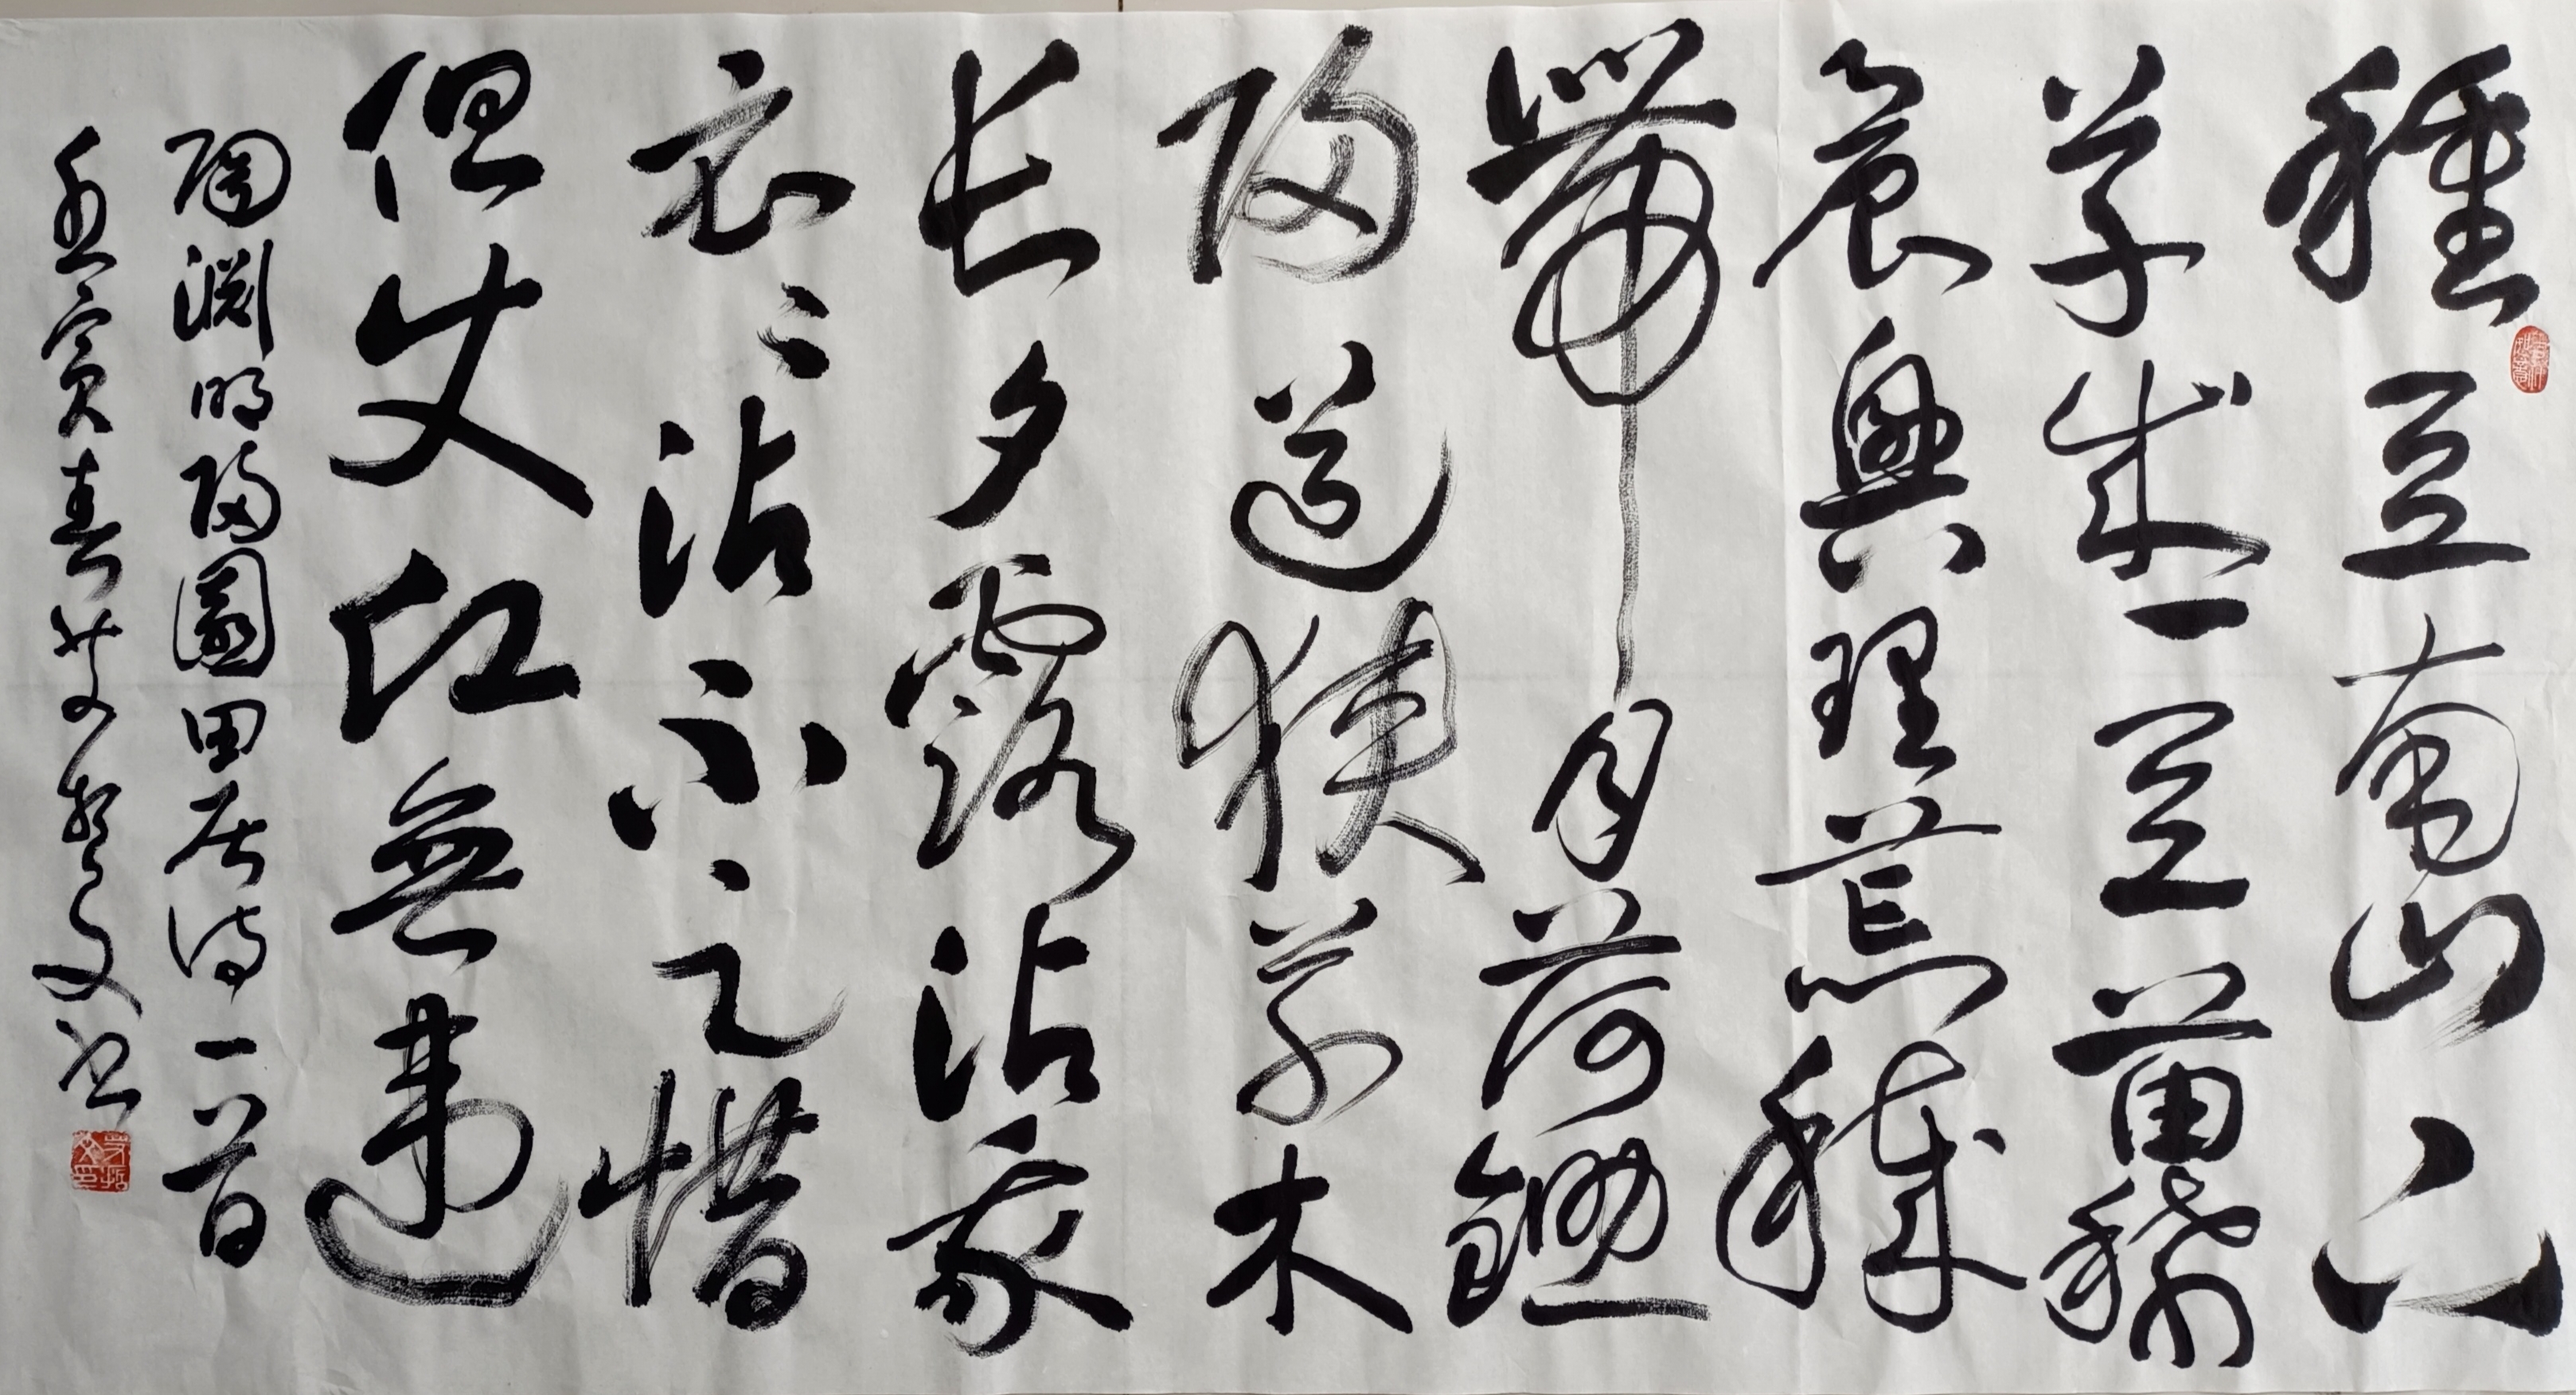 種豆南山下
草盛豆苗稀
晨興理荒穢
帶月荷鋤
歸道狹草木
長夕露沾我
衣〻沾不足惜
但使願無違
陶淵明歸園田居詩一首
壬寅春文書